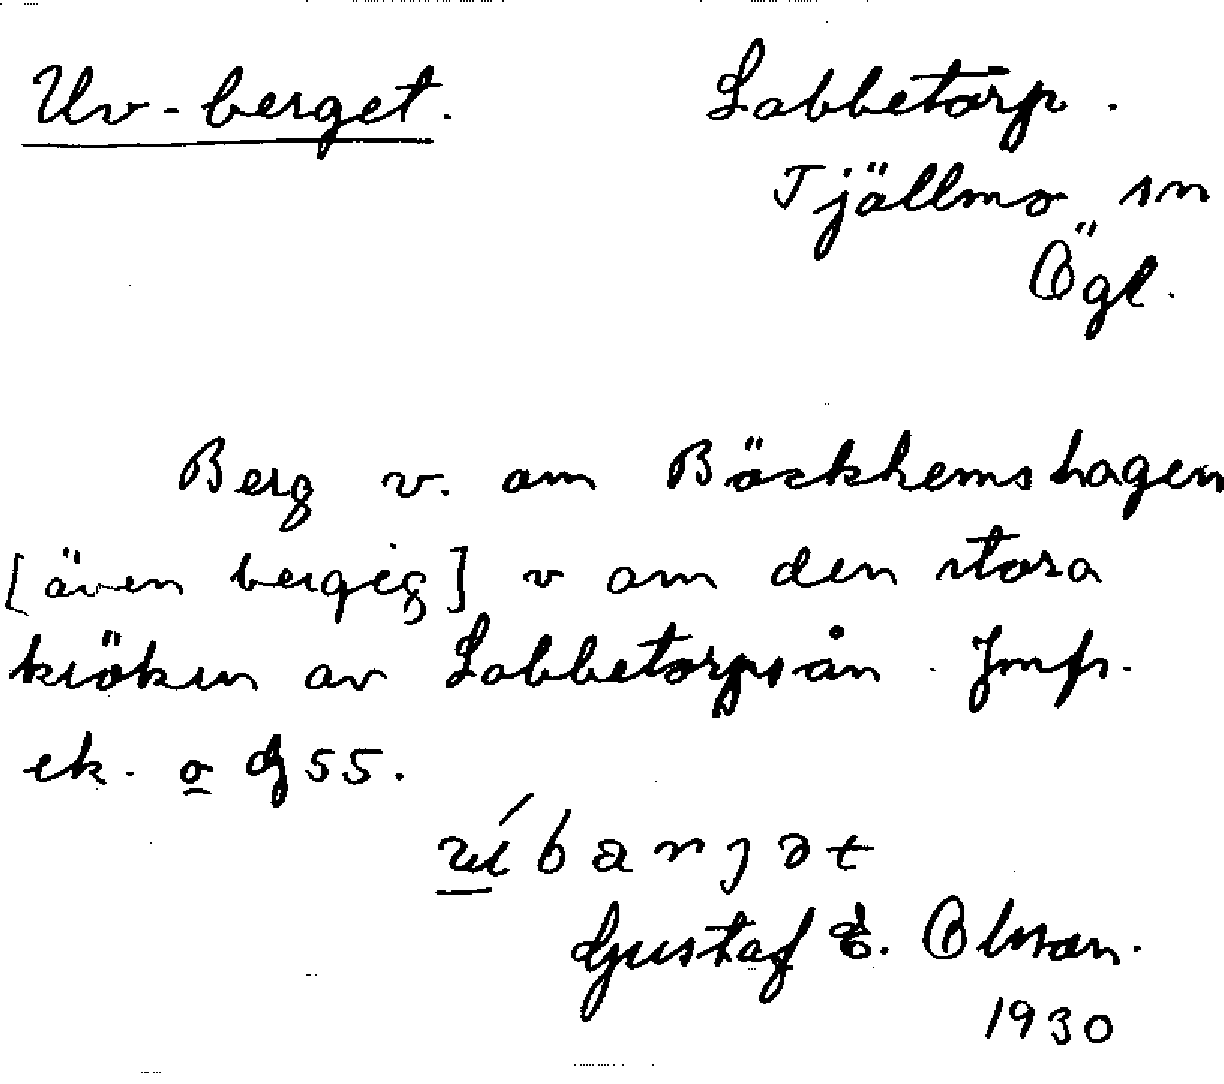 Uv-berget. Labbetorp.
Tjällmo sn
Ögl.
Berg v. om Bäckhemshagen
[även bergig] v om den stora
kröken av Labbetorpsån. Jmfr.
ek. o
ú b a r j ə t
Gustaf E. Olsson.
1930